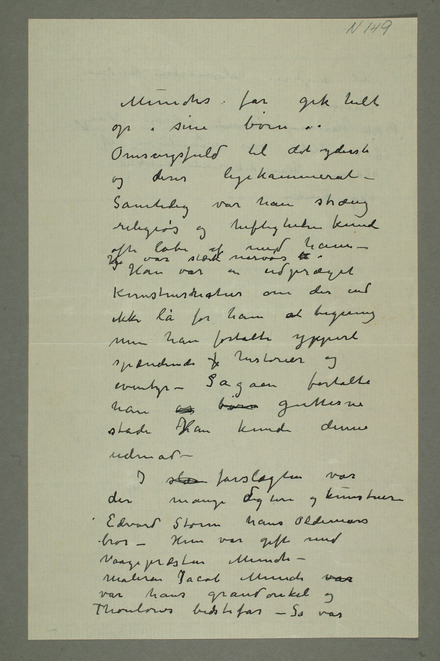 N 149
Munchs far gik helt
op i sine børn.
Omsorgsfuld til det yderste
og deres legekammerat –
Samtidig var han stræng
religiøs og heftigheden kunde
ofte løbe af med ham –
var stærk nervøs
Han var en udpræget
Kunstnernatur om der end
ikke lå for ham
men han fortalte ypperst
spændende historier og
eventyr – Sagaen fortalte
han børn guttene
stade Han kunde denne
udenad –
I farslægten var
der mange digtere og kunstnere
Edvard Storm hans Oldemors
bror – Hun var gift med
Vaagepræsten Munch –
maleren Jacob Munch var
var hans grandonkel og
Thaulows bedstefar – Så var